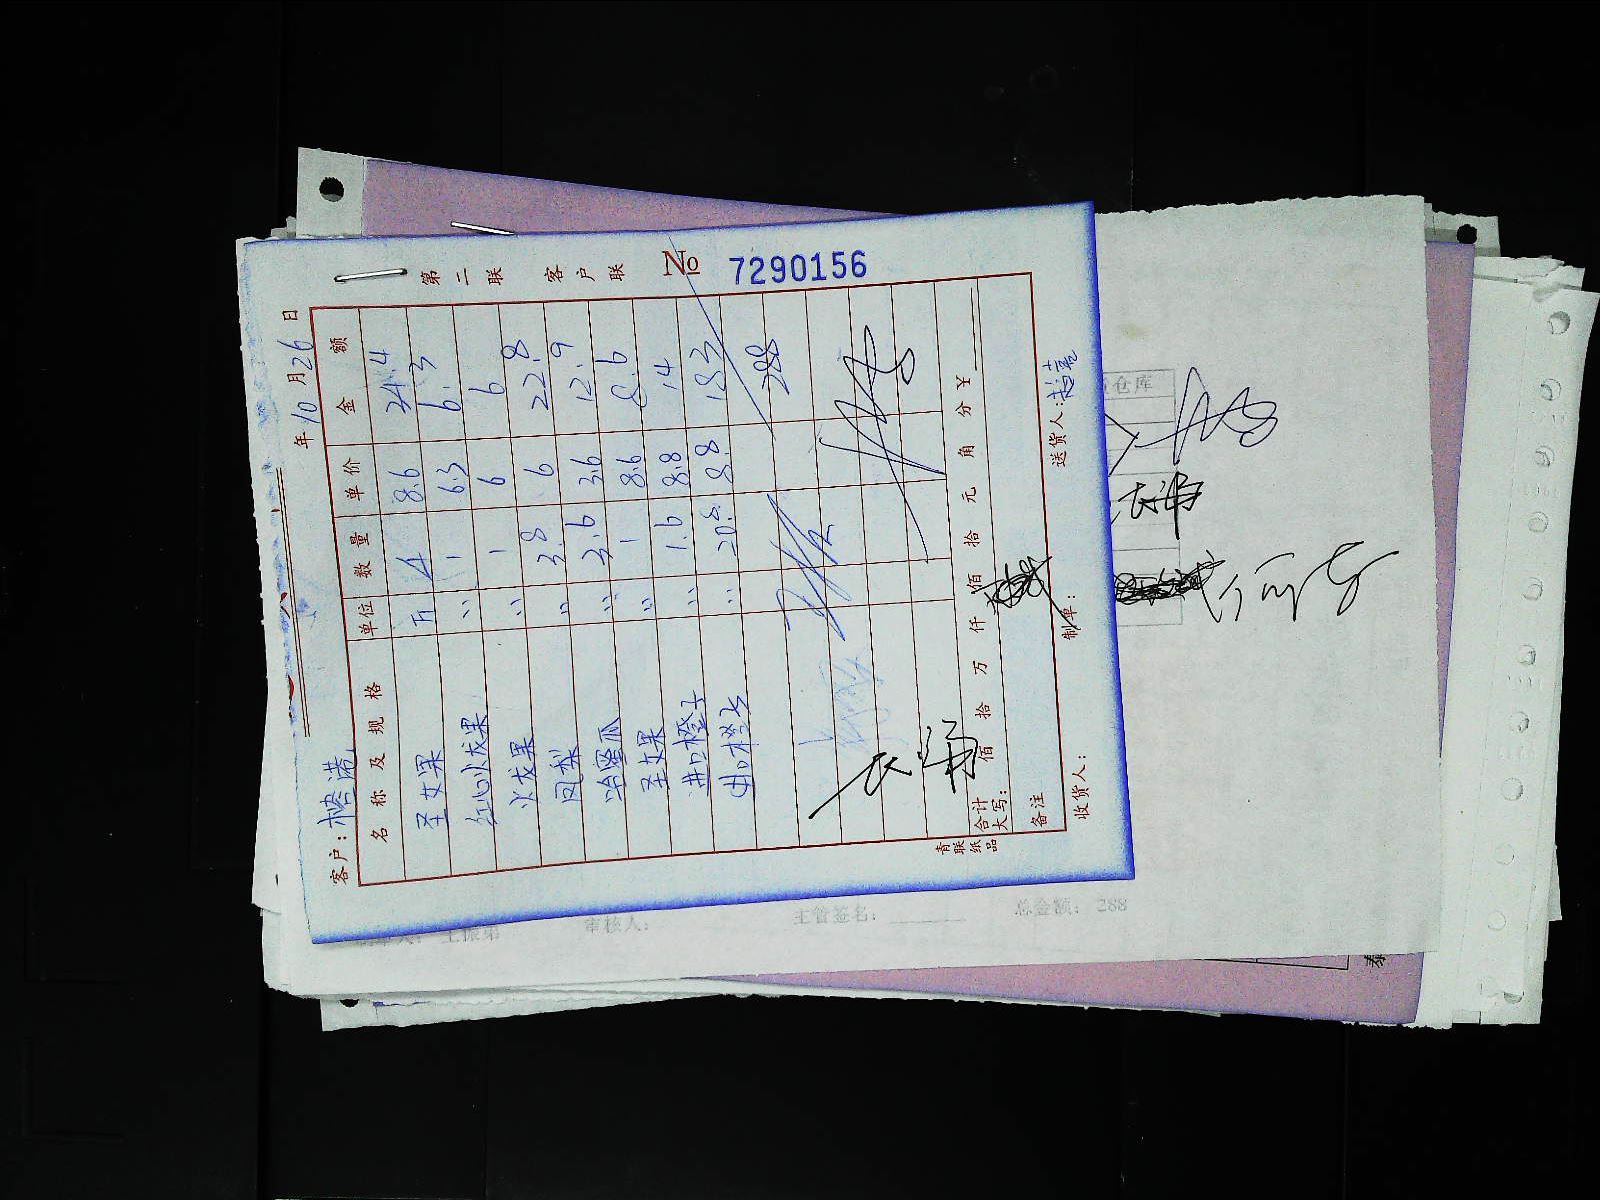 第二联 客户联 № 7290156
客户：檐港 年10月26日
名称及规格 单位 数量 单价 金额
圣女果 斤 4 8.6 34.4
红心火龙果 〃 1 6.3 6.3
火龙果 〃 1 6 6
凤梨 〃 3.8 6 22.8
哈蜜瓜 〃 3.6 3.6 12.9
圣女果 〃 1 8.6 8.6
进口橙子 〃 1.6 8.8 14
进口橙子 〃 20.8 8.8 183
288
合计大写： 佰 拾 万 仟 佰 拾 元 角 分 ￥
备注
收货人： 制单： 送货人：
青联纸品
仓库
审核人： 主管签名： 总金额：288
泰